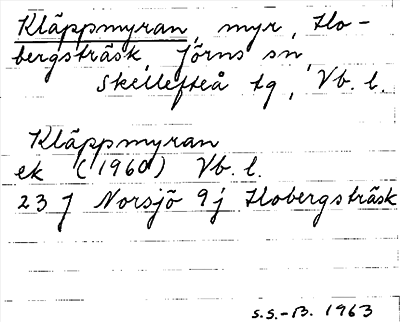 Kläppmyran, myr, Flo-
bergsträsk, Jörns sn,
Skellefteå tg, Vb. l.
Kläppmyran
ek (1960) Vb. l.
23 J Norsjö 9j Flobergsträsk
S.S.-B. 1963